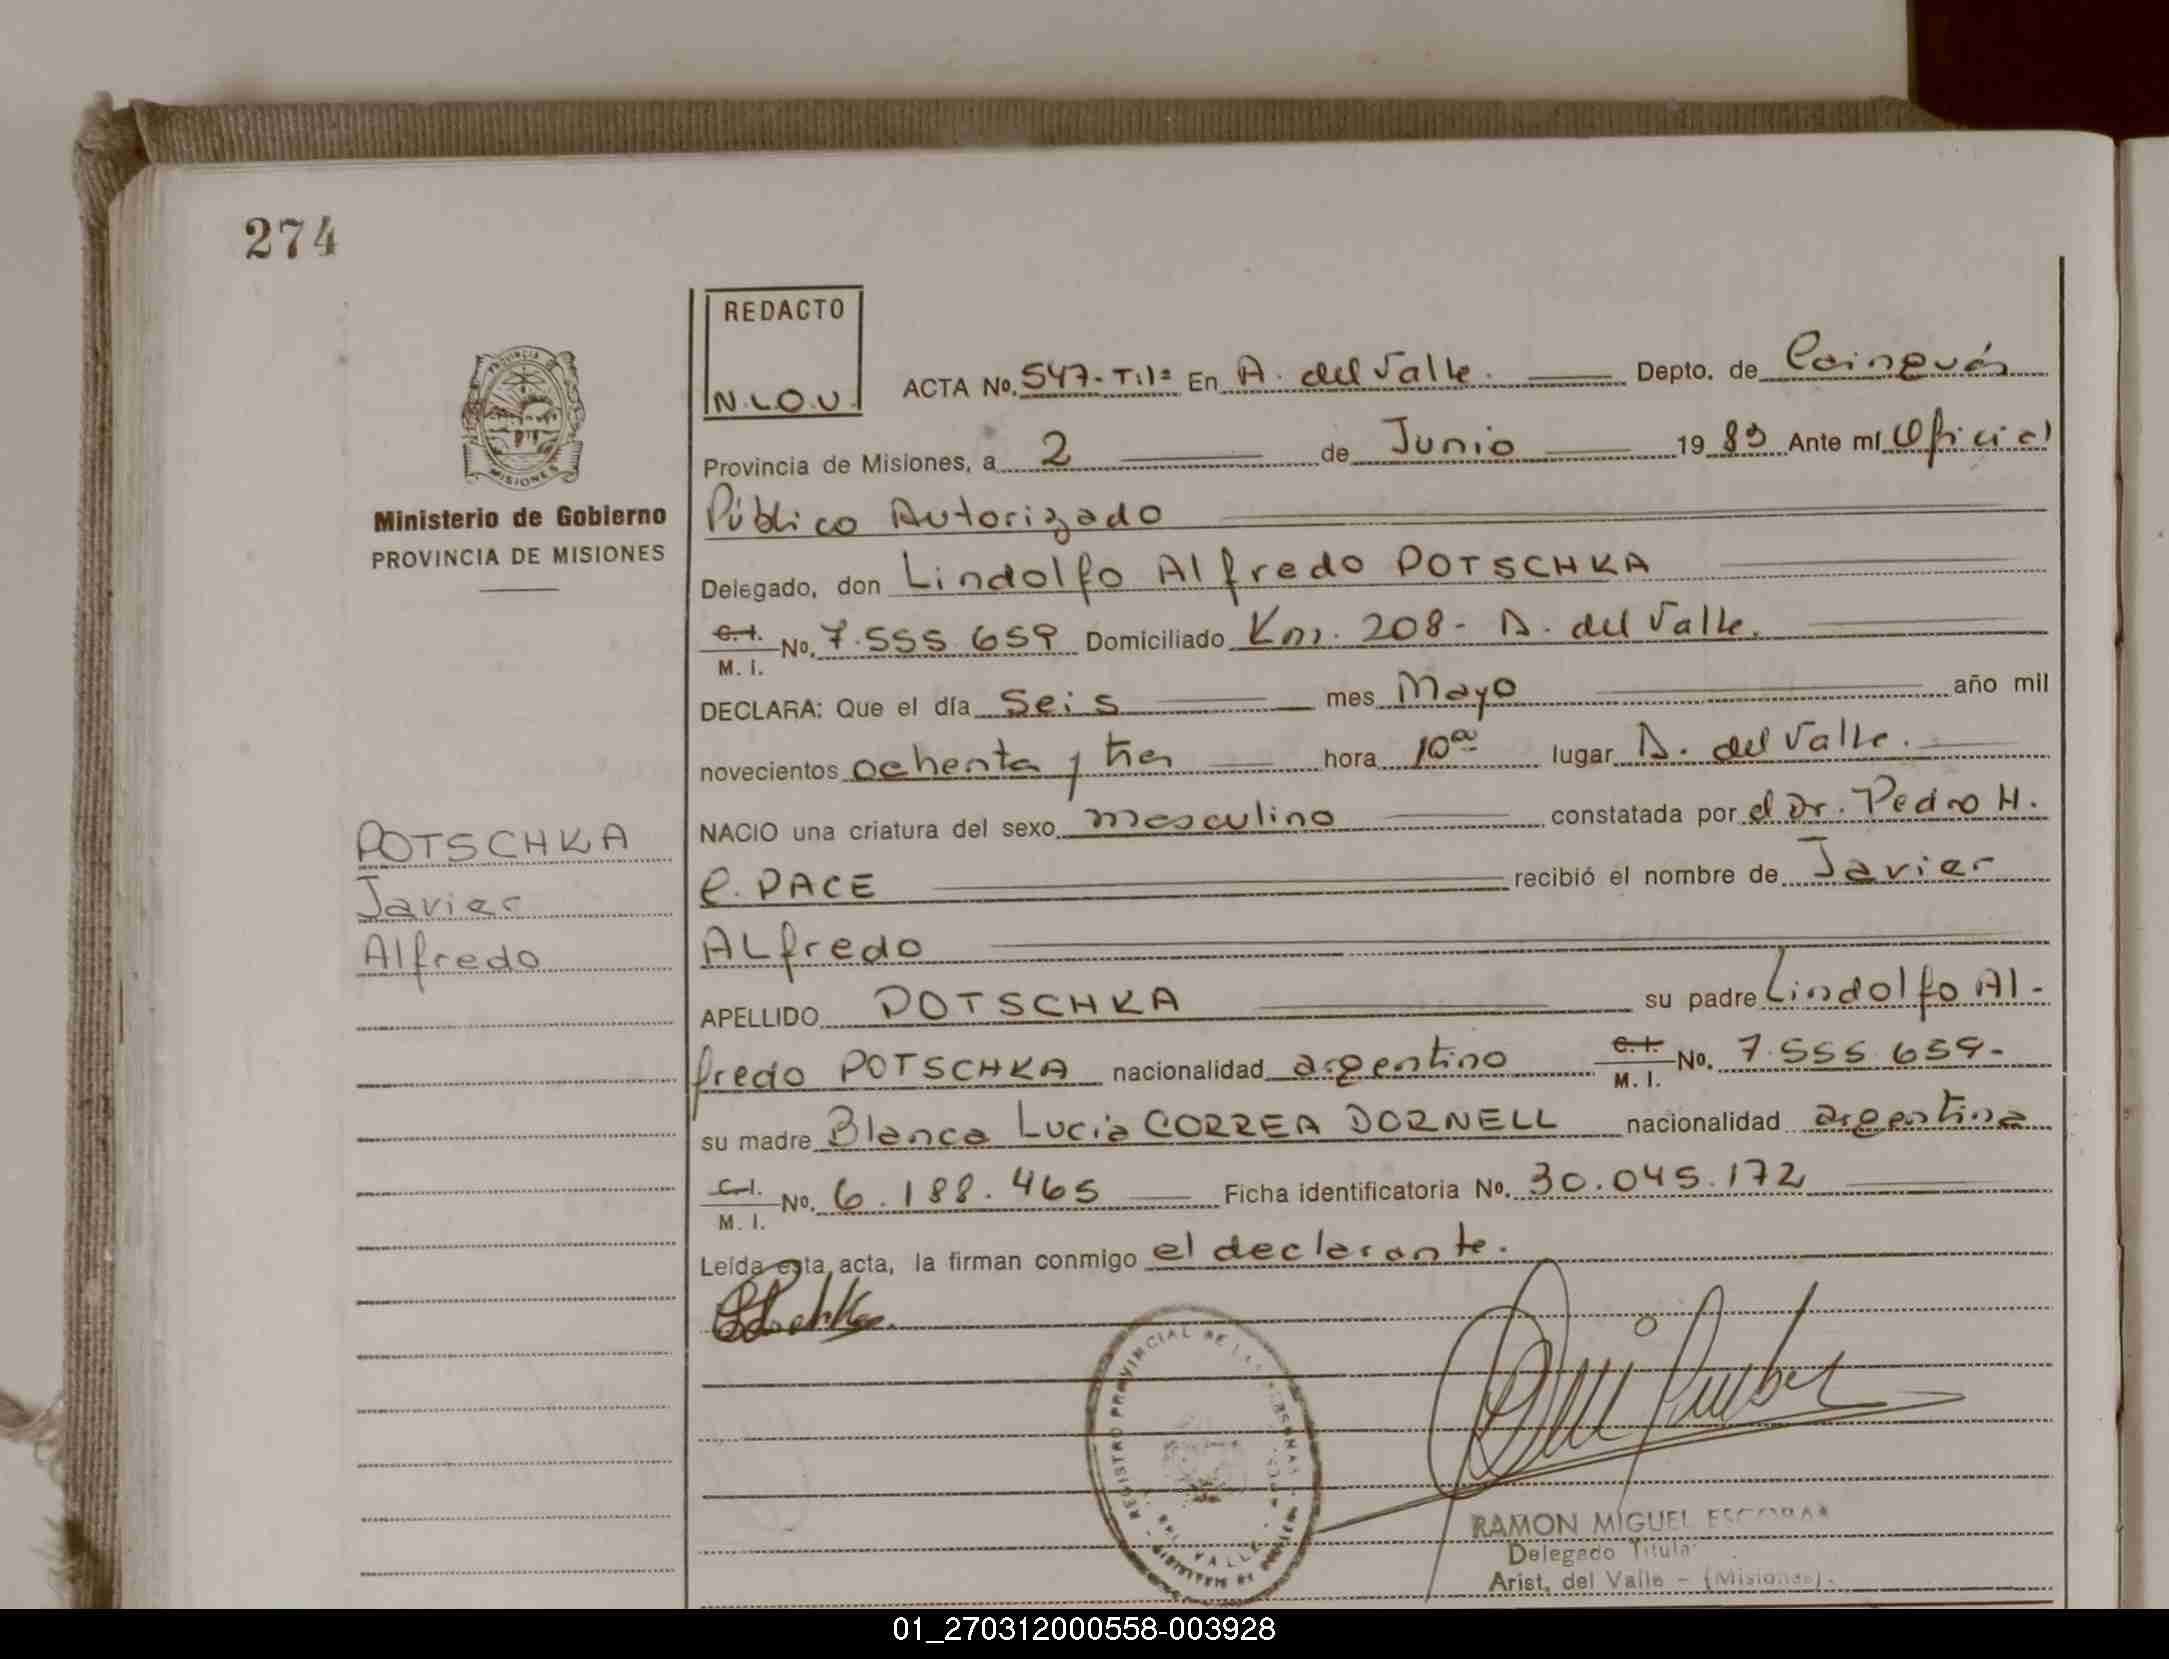 274
REDACTO
N.L.O.U.
ACTA No. 547-T.1º En A. del Valle. Depto. de Cainguás
Provincia de Misiones, a 2 de Junio 1983 Ante mí Oficial
Público Autorizado
Ministerio de Gobierno
PROVINCIA DE MISIONES
Delegado, don Lindolfo Alfredo POTSCHKA
C. I.
M. I. No. 7.555.659 Domiciliado Km. 208- A. del Valle.
DECLARA: Que el día seis mes Mayo año mil
novecientos ochenta y tres hora 10ºº lugar A. del Valle.
NACIO una criatura del sexo masculino constatada por el Dr. Pedro H.
C. PACE recibió el nombre de Javier
ALfredo
POTSCHKA
Javier
Alfredo
APELLIDO POTSCHKA su padre Lindolfo Al-
fredo POTSCHKA nacionalidad argentino C. I.
M. I. No. 7.555.659-
su madre Blanca Lucia CORREA DORNELL nacionalidad argentina
C. I.
M. I. No. 6.188.465 Ficha identificatoria No. 30.045.172
Leída esta acta, la firman conmigo el declarante.
REGISTRO PROVINCIAL DE LAS PERSONAS
DEL VALLE
RAMON MIGUEL ESCOBAR
Delegado Titular
Arist. del Valle - (Misiones).
01_270312000558-003928